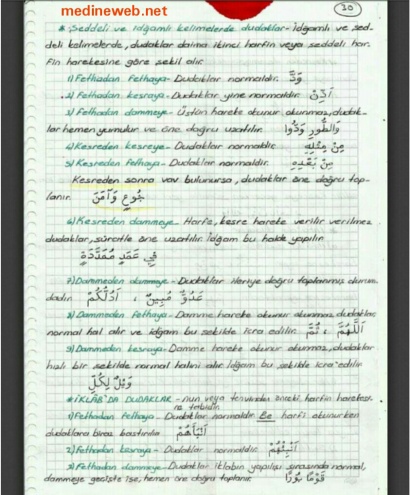 medineweb.net
20
* Şeddeli ve idğamlı kelimelerde dudaklar - İdğamlı ve şed-
deli kelimelerde, dudaklar daima ikinci harfin veya şeddeli har-
fin harekesine göre şekil alır.
1) Fethadan fethaya - Dudaklar normaldir. وَدَّ
2) Fethadan kesraya - Dudaklar yine normaldir.
3) Fethadan dammeye - Üstün hareke okunur okunmaz, dudak-
lar hemen yumulur ve öne doğru uzatılır. وَالطُّورِ وَدُّوا
4) Kesreden kesreye - Dudaklar normaldir. مِنْ مِثْلِهِ
5) Kesreden fethaya - Dudaklar normaldir. مِنْ بَعْدِهِ
Kesreden sonra vav bulunursa, dudaklar öne doğru top-
lanır. جُوعٍ وَآمَنَ
6) Kesreden dammeye - Harfe, kesre hareke verilir verilmez
dudaklar, süratle öne uzatılır. İdğam bu halde yapılır
فِي عَمَدٍ مُمَدَّدَةٍ
7) Dammeden dammeye - Dudaklar ileriye doğru toplanmış durum
dadır عَدُوٌّ مُبِينٌ ،
8) Dammeden fethaya - Damme hareke okunur okunmaz dudaklar,
normal hal alır ve idğam bu şekilde icra edilir. اَللّٰهُمَّ ، ثُمَّ
9) Dammeden kesraya - Damme hareke okunur okunmaz, dudaklar
hızlı bir şekilde normal halini alır. İdğam bu şekilde icra edilir
وَيْلٌ لِكُلِّ
* İKLÂB'DA DUDAKLAR - nun veya tenvinden önceki harfin harekesi-
ne tabidir.
1) Fethadan fethaya - Dudaklar normaldir. Be harfi okunurken
dudaklara biraz bastırılır.
2) Fethadan kesraya - Dudaklar normaldir. أَنْبِئْهُمْ
3) Fethadan dammeye - Dudaklar iklabın yapılışı sırasında normal,
dammeye geçişte ise, hemen öne doğru toplanır. قَوْمًا بُورًا